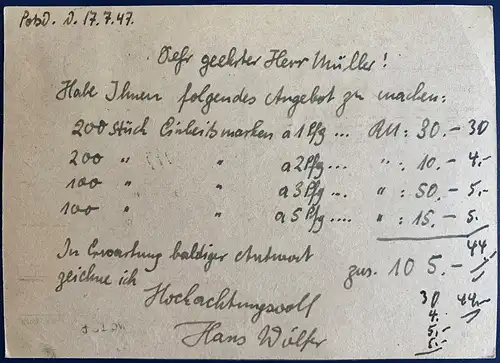 Pbd. d. 17.7.47.
Sehr geehrter Herr Müller!
Habe Ihnen folgendes Angebot zu machen:
200 Stück Einheitsmarken à 1 Pfg ... RM: 30.- 30
200 " " a 2 Pfg ... " : 10.- 4.-
100 " " a 3 Pfg ... " : 50.- 5.-
100 " " a 5 Pfg .... " : 15.- 5.
In Erwartung baldiger Antwort 44
zeichne ich zus. 105.-
Hochachtungsvoll 30 44
Hans Wölfer 4.
5.-
5.-